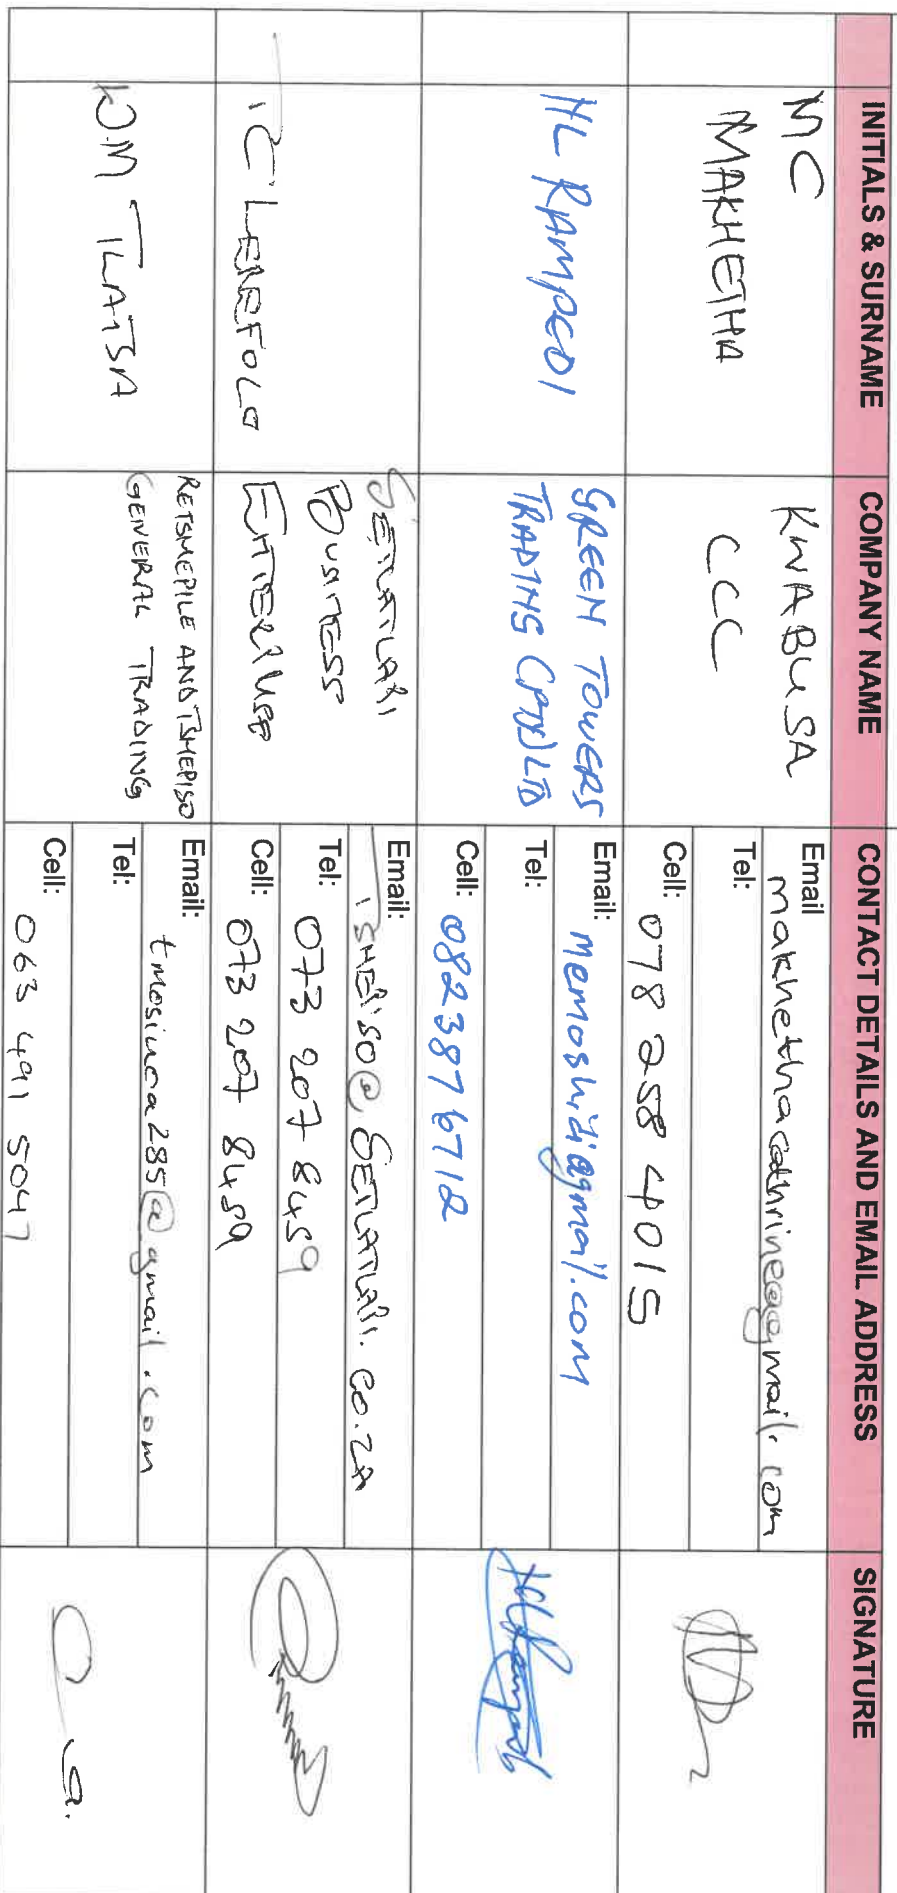 INITIALS & SURNAME
COMPANY NAME
CONTACT DETAILS AND EMAIL ADDRESS
SIGNATURE
MC
MAKHETHA
KWABUSA
CCC
Email makhethacathrine@gmail.com
Tel:
Cell: 078 258 4015
HL RAMPEDI
GREEN TOWERS
TRADING (PTY) LTD
Email: memoshidi@gmail.com
Tel:
Cell: 0823876712
TC LEREFOLO
SETLATLAPI
BUSINESS
ENTERPRISE
Email: TSHEPISO@SETLATLAPI.CO.ZA
Tel: 073 207 8459
Cell: 073 207 8459
D.M TLATSA
RETSMEPILE AND TSHEPISO
GENERAL TRADING
Email: tmosinoa285@gmail.com
Tel:
Cell: 063 491 5047